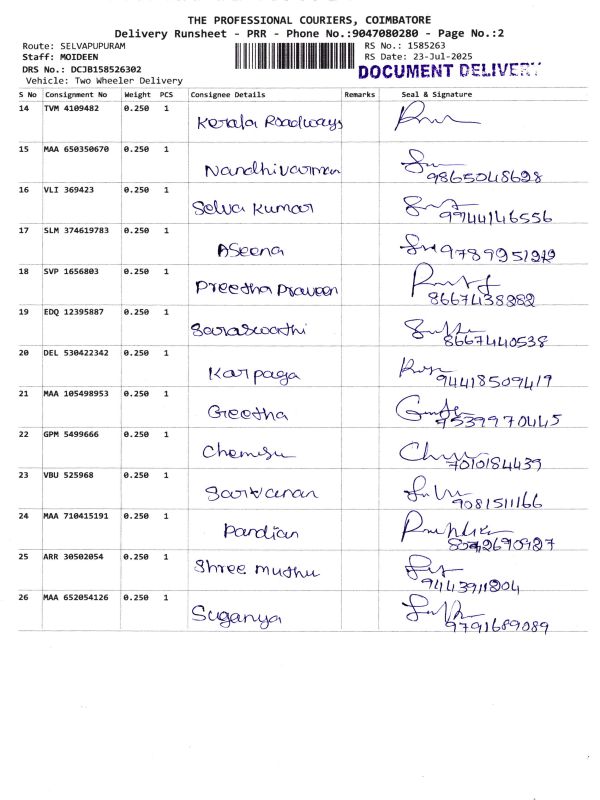 THE PROFESSIONAL COURIERS, COIMBATORE
Delivery Runsheet - PRR - Phone No.:9047080280 - Page No.:2
Route: SELVAPUPURAM RS No.: 1585263
Staff: MOIDEEN RS Date: 23-Jul-2025
DRS No.: DCJB158526302 DOCUMENT DELIVERY
Vehicle: Two Wheeler Delivery
S No Consignment No Weight PCS Consignee Details Remarks Seal & Signature
14 TVM 4109482 0.250 1 Kerala Roadways
15 MAA 650350670 0.250 1 Nandhivarman 9865048628
16 VLI 369423 0.250 1 Selva Kumar 9944146556
17 SLM 374619783 0.250 1 ASeena
18 SVP 1656803 0.250 1 Preetha Praveen
19 EDQ 12395887 0.250 1 Saraswathi 8667440538
20 DEL 530422342 0.250 1 Karpaga 94418509419
21 MAA 105498953 0.250 1 Geetha 9539970445
22 GPM 5499666 0.250 1 7010184439
23 VBU 525968 0.250 1 9081511166
24 MAA 710415191 0.250 1 Pandian
25 ARR 30502054 0.250 1 Shree Muthu
26 MAA 652054126 0.250 1 Suganya 9791689089